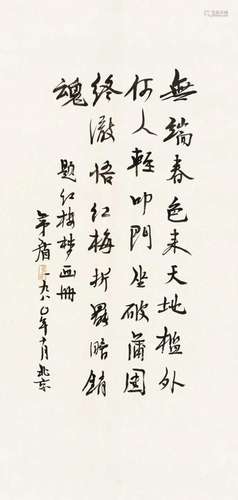 無端春色来天地檻外
何人輕叩門坐破蒲團
終澈悟红梅折罷暗銷
魂
题红楼梦画册
茅盾
一九八〇年十月北京